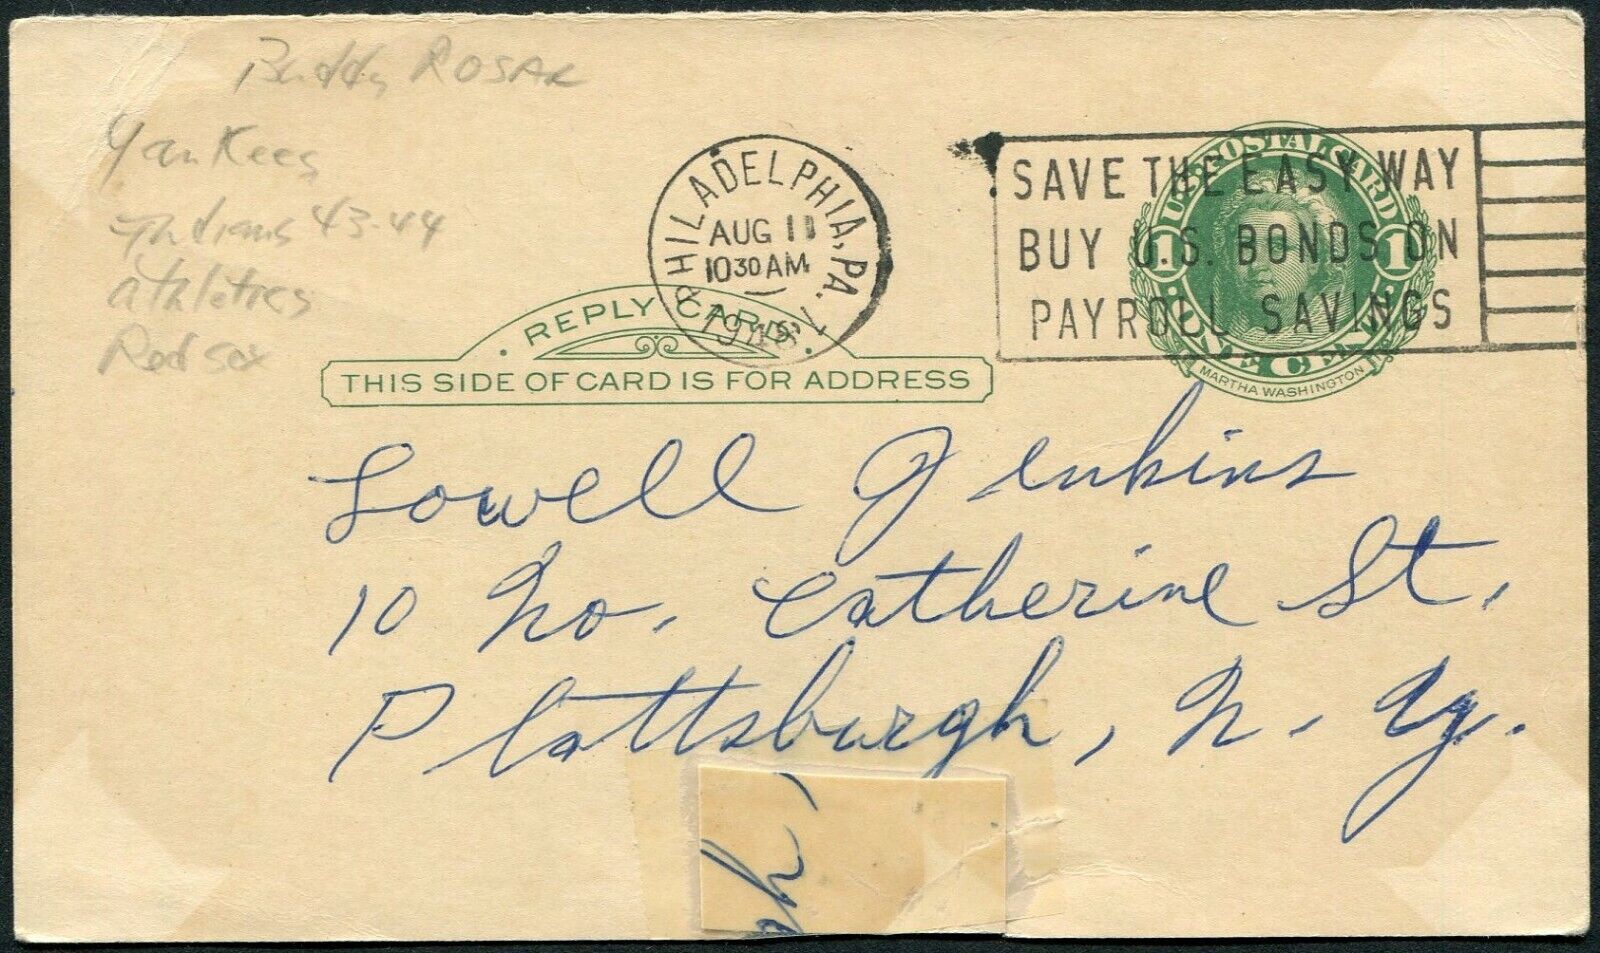 Buddy ROSAR
Yankees
Indians 43-44
athletics
Red sox
PHILADELPHIA, PA.
AUG 11
10 30 AM
SAVE THE EASY WAY
BUY U.S. BONDS ON
PAYROLL SAVINGS
U.S. POSTAL CARD
1 1
ONE CENT
MARTHA WASHINGTON
REPLY CARD
THIS SIDE OF CARD IS FOR ADDRESS
Lowell Jenkins
10 No. Catherine St.,
Plattsburgh, N. Y.